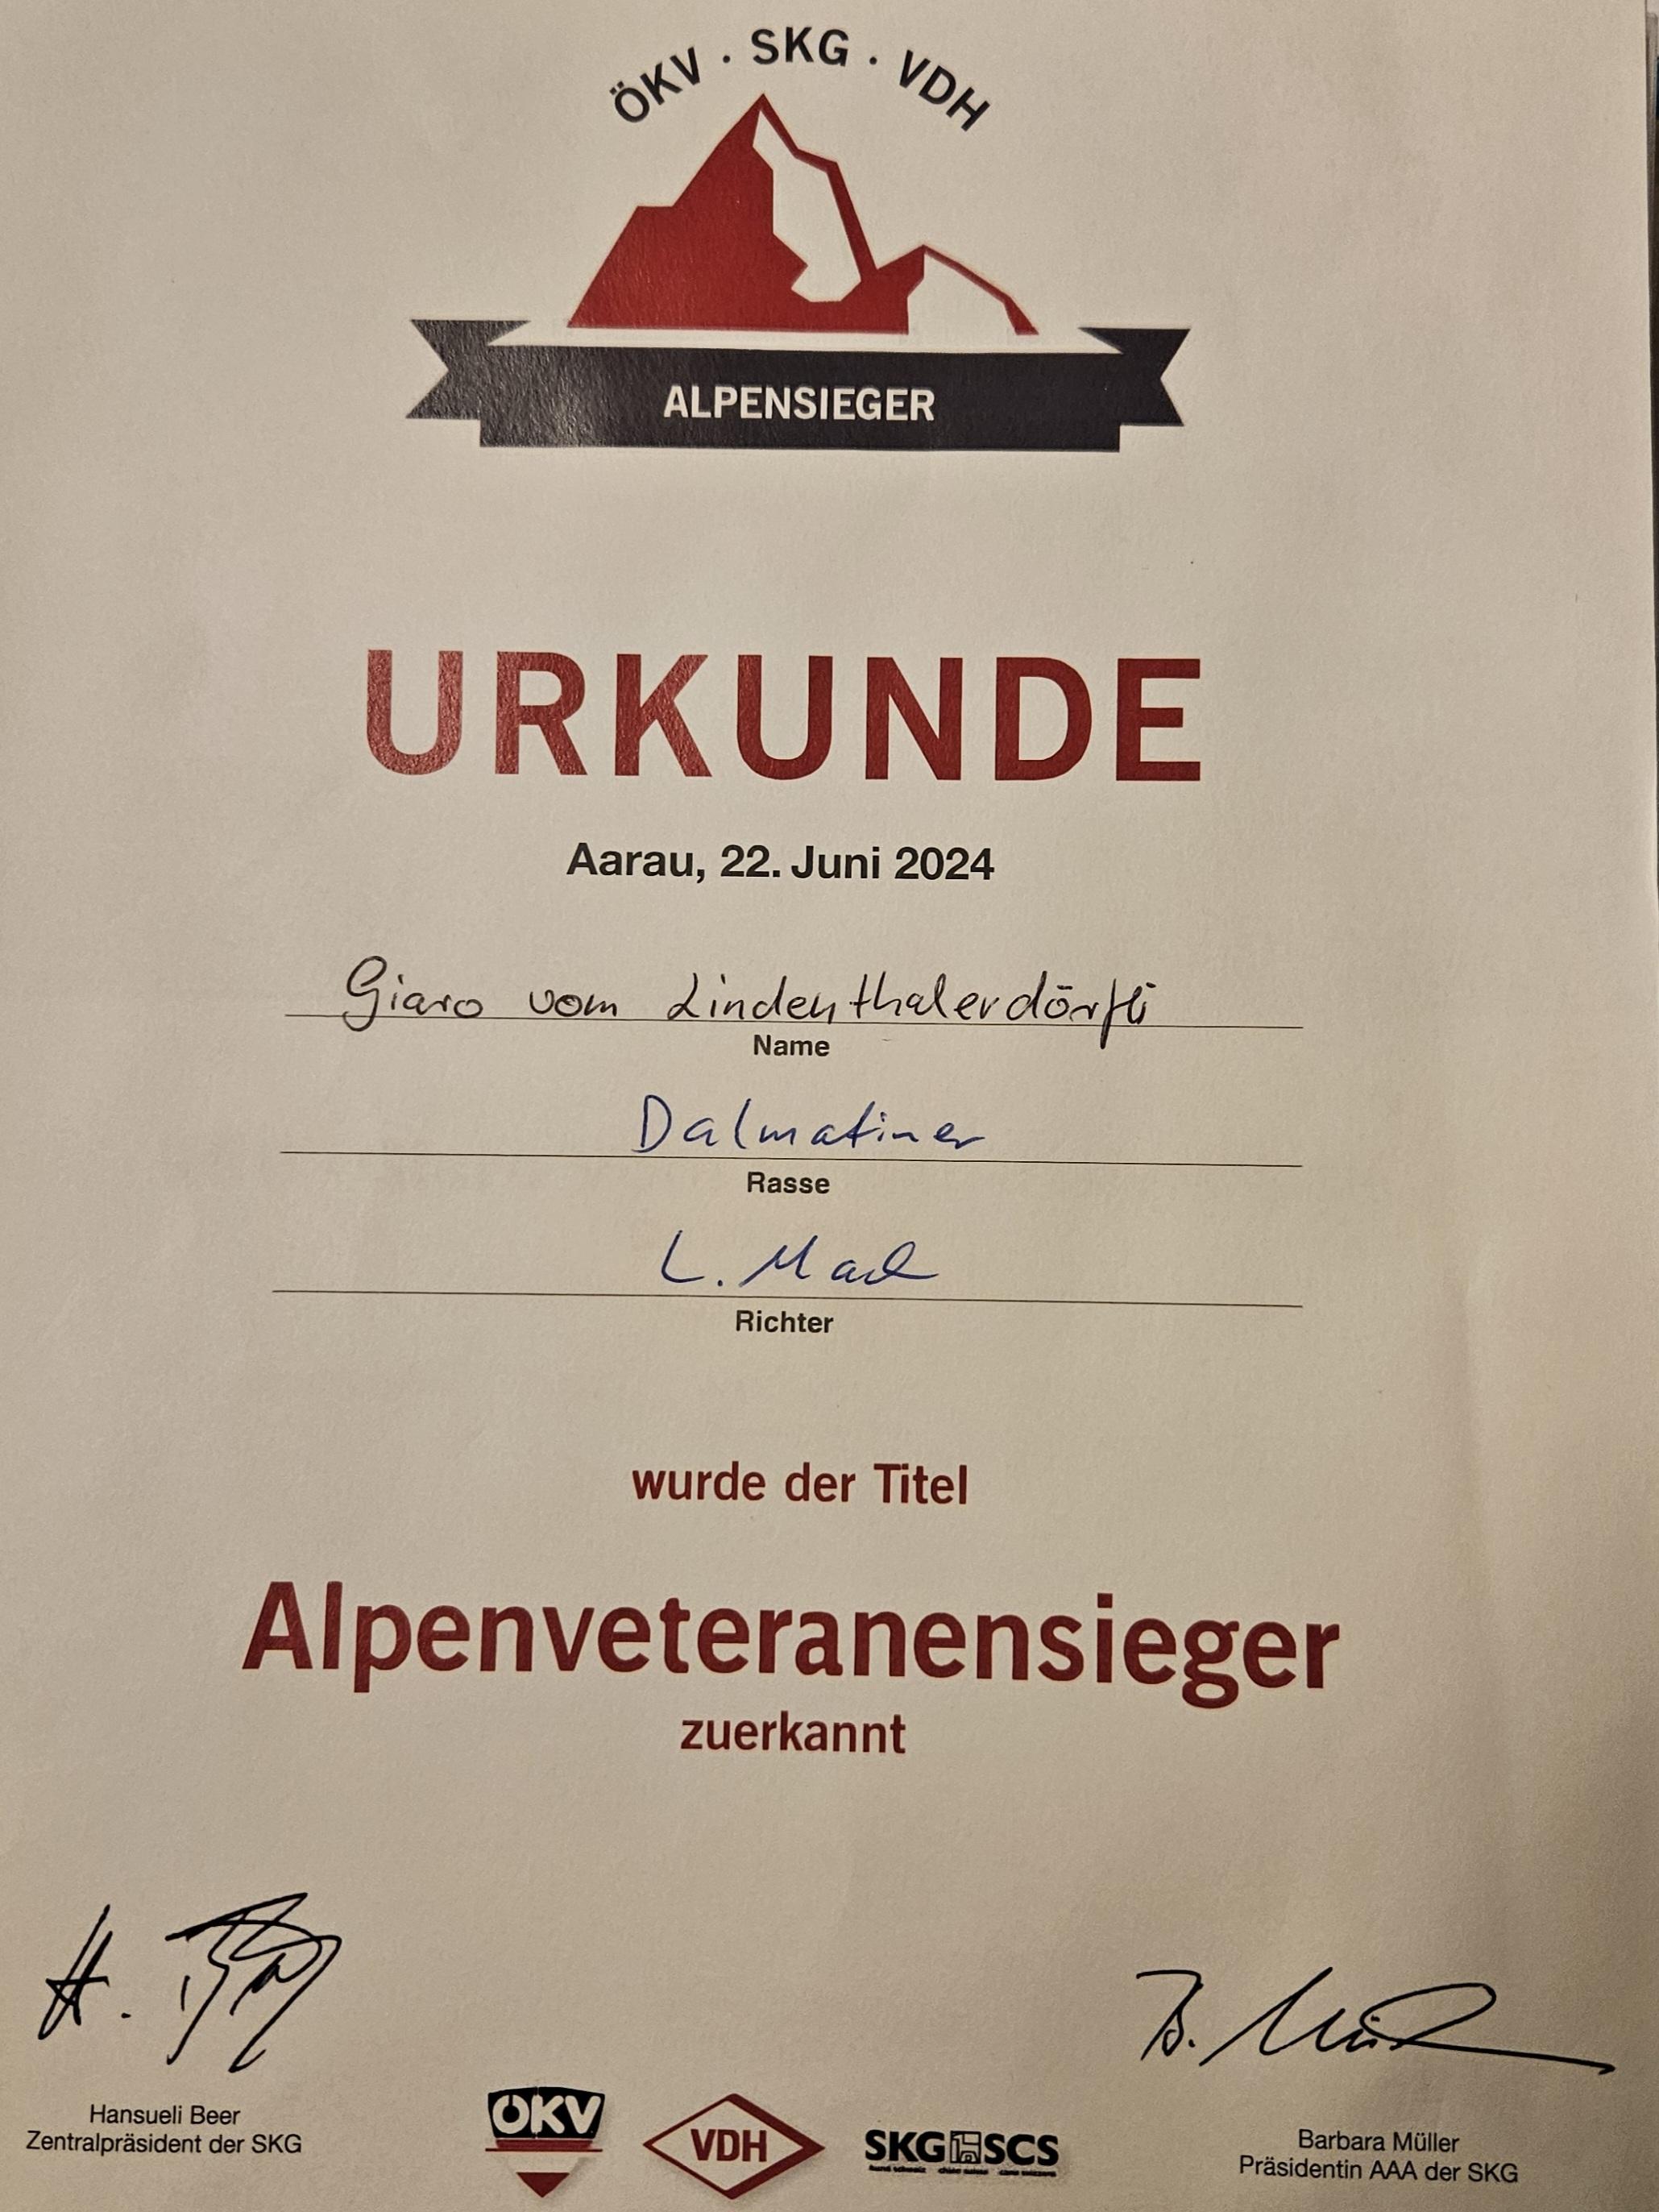 ÖKV · SKG · VDH
ALPENSIEGER
URKUNDE
Aarau, 22. Juni 2024
Giaro vom Lindenthalerdörfli
Name
Dalmatiner
Rasse
L. Mach
Richter
wurde der Titel
Alpenveteranensieger
zuerkannt
H.
B.
Hansueli Beer
Zentralpräsident der SKG
ÖKV
VDH
SKG SCS
Barbara Müller
Präsidentin AAA der SKG